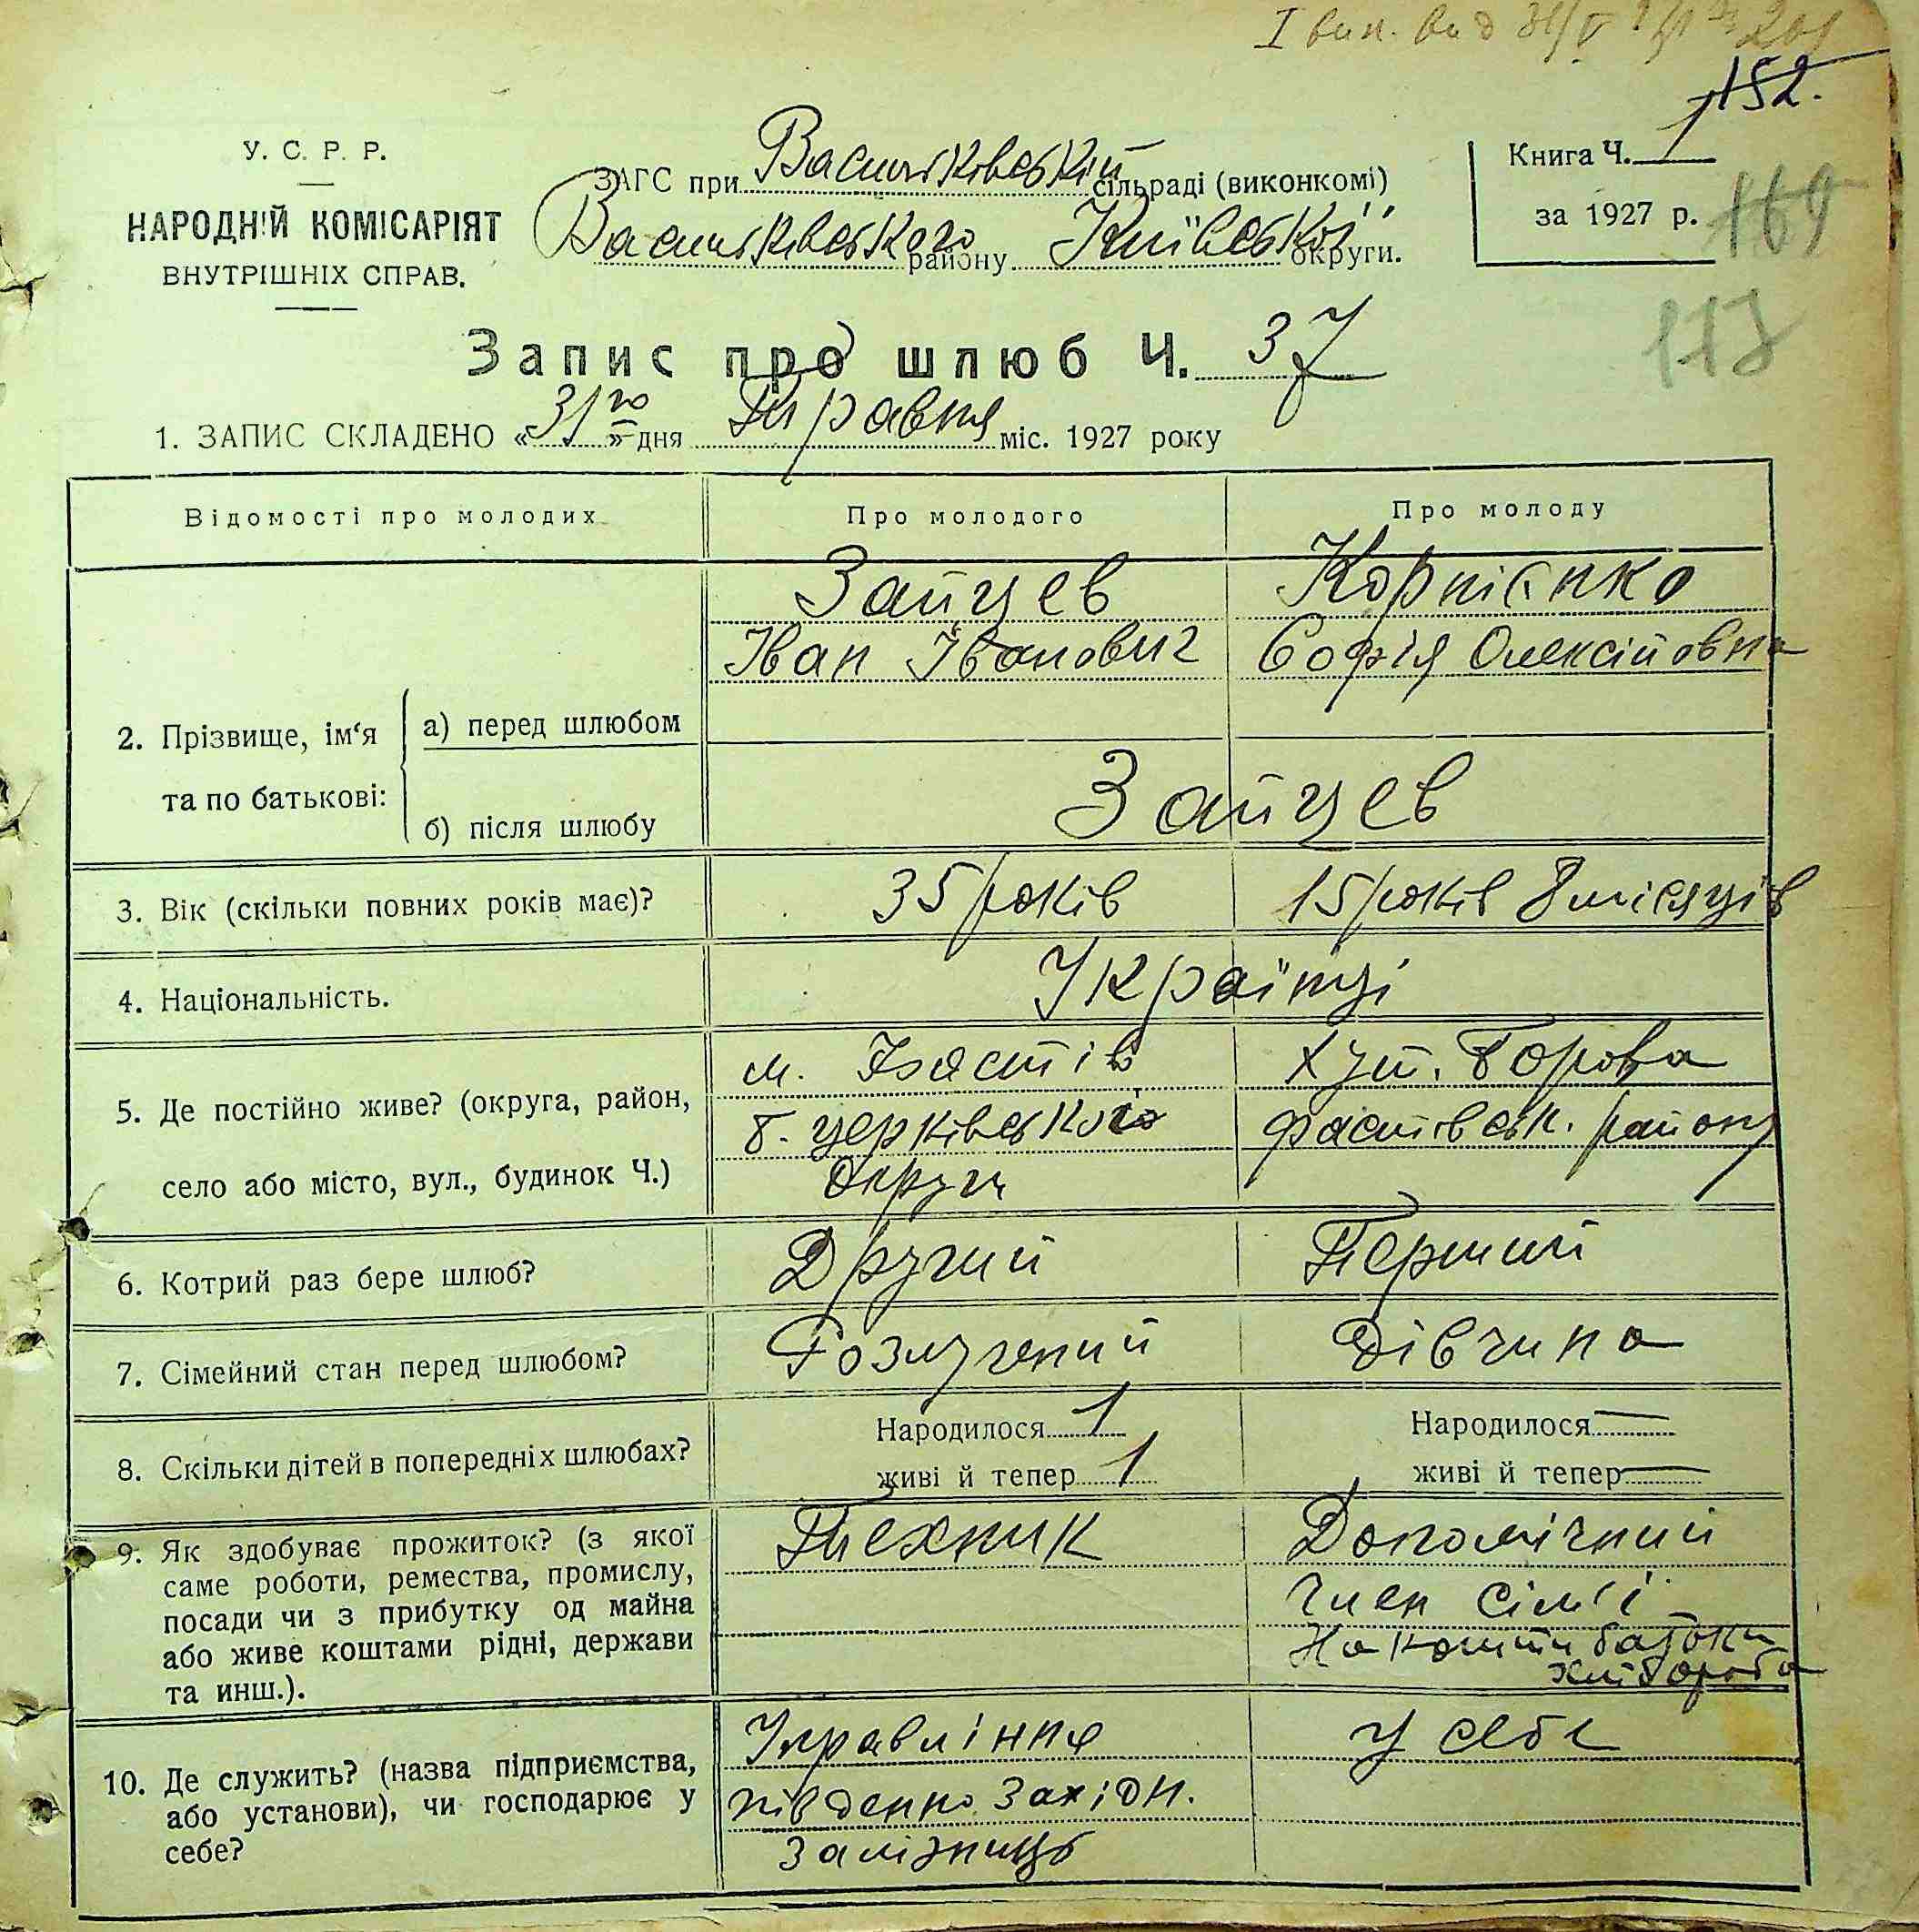 I вип. вид 31/V
152.
У. С. Р. Р.
НАРОДНІЙ КОМІСАРІЯТ
ВНУТРІШНІХ СПРАВ.
ЗАГС при Васильківській сільраді (виконкомі)
Васильківського району Київської округи.
Книга Ч. 1
за 1927 р.
169
113
Запис про шлюб Ч. 37
1. ЗАПИС СКЛАДЕНО «31го» дня Травня міс. 1927 року
Відомості про молодих
Про молодого
Про молоду
2. Прізвище, ім'я та по батькові:
а) перед шлюбом
Зайцев
Іван Іванович
Корнієнко
Софія Олексійовна
б) після шлюбу
Зайцев
3. Вік (скільки повних років має)?
35 років
15 років 8 місяців
4. Національність.
Українці
5. Де постійно живе? (округа, район,
село або місто, вул., будинок Ч.)
м. Хвастів
б. церківської
округи
Хут. Борова
фастівськ. району
6. Котрий раз бере шлюб?
Другий
Перший
7. Сімейний стан перед шлюбом?
Розлучений
Дівчина
8. Скільки дітей в попередніх шлюбах?
Народилося 1
живі й тепер 1
Народилося —
живі й тепер —
9. Як здобуває прожиток? (з якої
саме роботи, ремества, промислу,
посади чи з прибутку од майна
або живе коштами рідні, держави
та инш.).
Техник
Допомічний
член сім'ї
на кошти батька
хлібороба
10. Де служить? (назва підприємства,
або установи), чи господарює у
себе?
Управління
південно Західн.
Залізниць
У себе